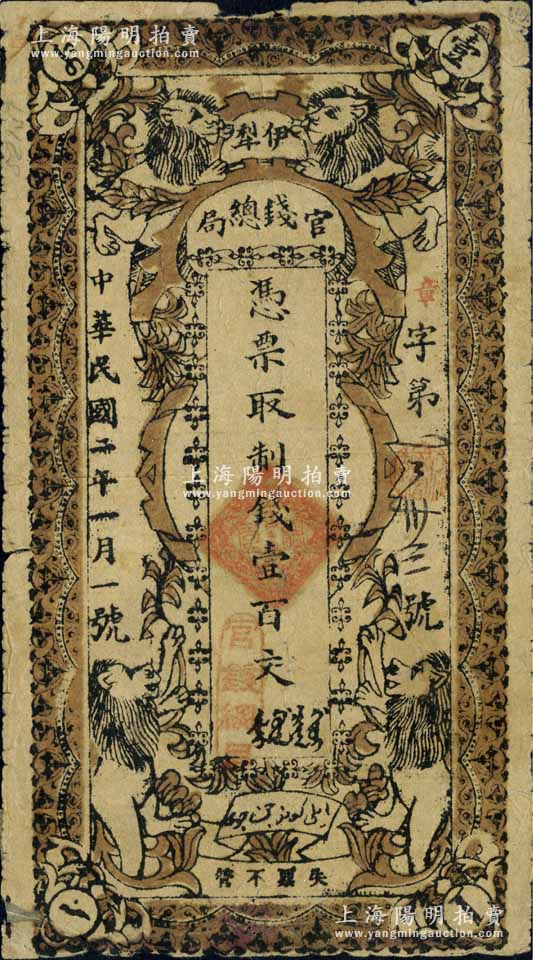 上海陽明拍賣
www.yangmingauction.com
壹
伊犁
官錢總局
憑票取制錢壹百文
章字第
三號
中華民國二年一月一號
上海陽明拍賣
www.yangmingauction.com
官錢總局
失票不管
一
上海陽明拍賣
www.yangmingauction.com